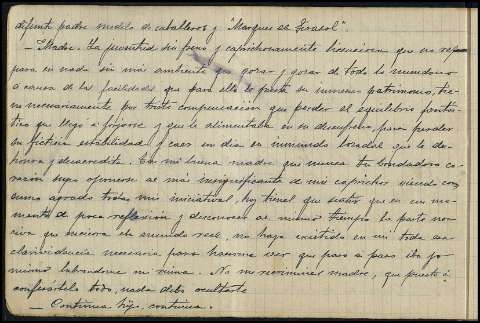 difunto padre modelo de caballeros y "Marques del Girasol".
— Madre. La juventud sin freno y caprichosamente licenciosa que no repara
para en nada sin más ambiente que gozar y gozar de todo lo mundano
a causa de la facilidades que para ello le presta su inmenso patrimonio, tie-
ne necesariamente por triste compensación que perder el equilibrio fantás-
tico que llegó a forjarse y que le alimentaba en su desenfreno, para perder
su ficticia estabilidad y caer un día en inmundo lodazal que le des-
honra y desacredita. Tú mi buena madre que nunca tu bondadoso co-
razón supo oponerse al más insignificante de mis caprichos viendo con
sumo agrado todas mis iniciativas, hoy tienes que sentir que en un mo-
mento de poca reflexión y desconocer al mismo tiempo la parte no-
civa que encierra el mundo real, no haya existido en mi toda esa
clarividencia necesaria para hacerme ver que paso a paso iba yo
mismo labrandome mi ruina. No me recrimines madre, que puesto á
confesártelo todo, nada debo ocultarte
— Continua hijo, continua.